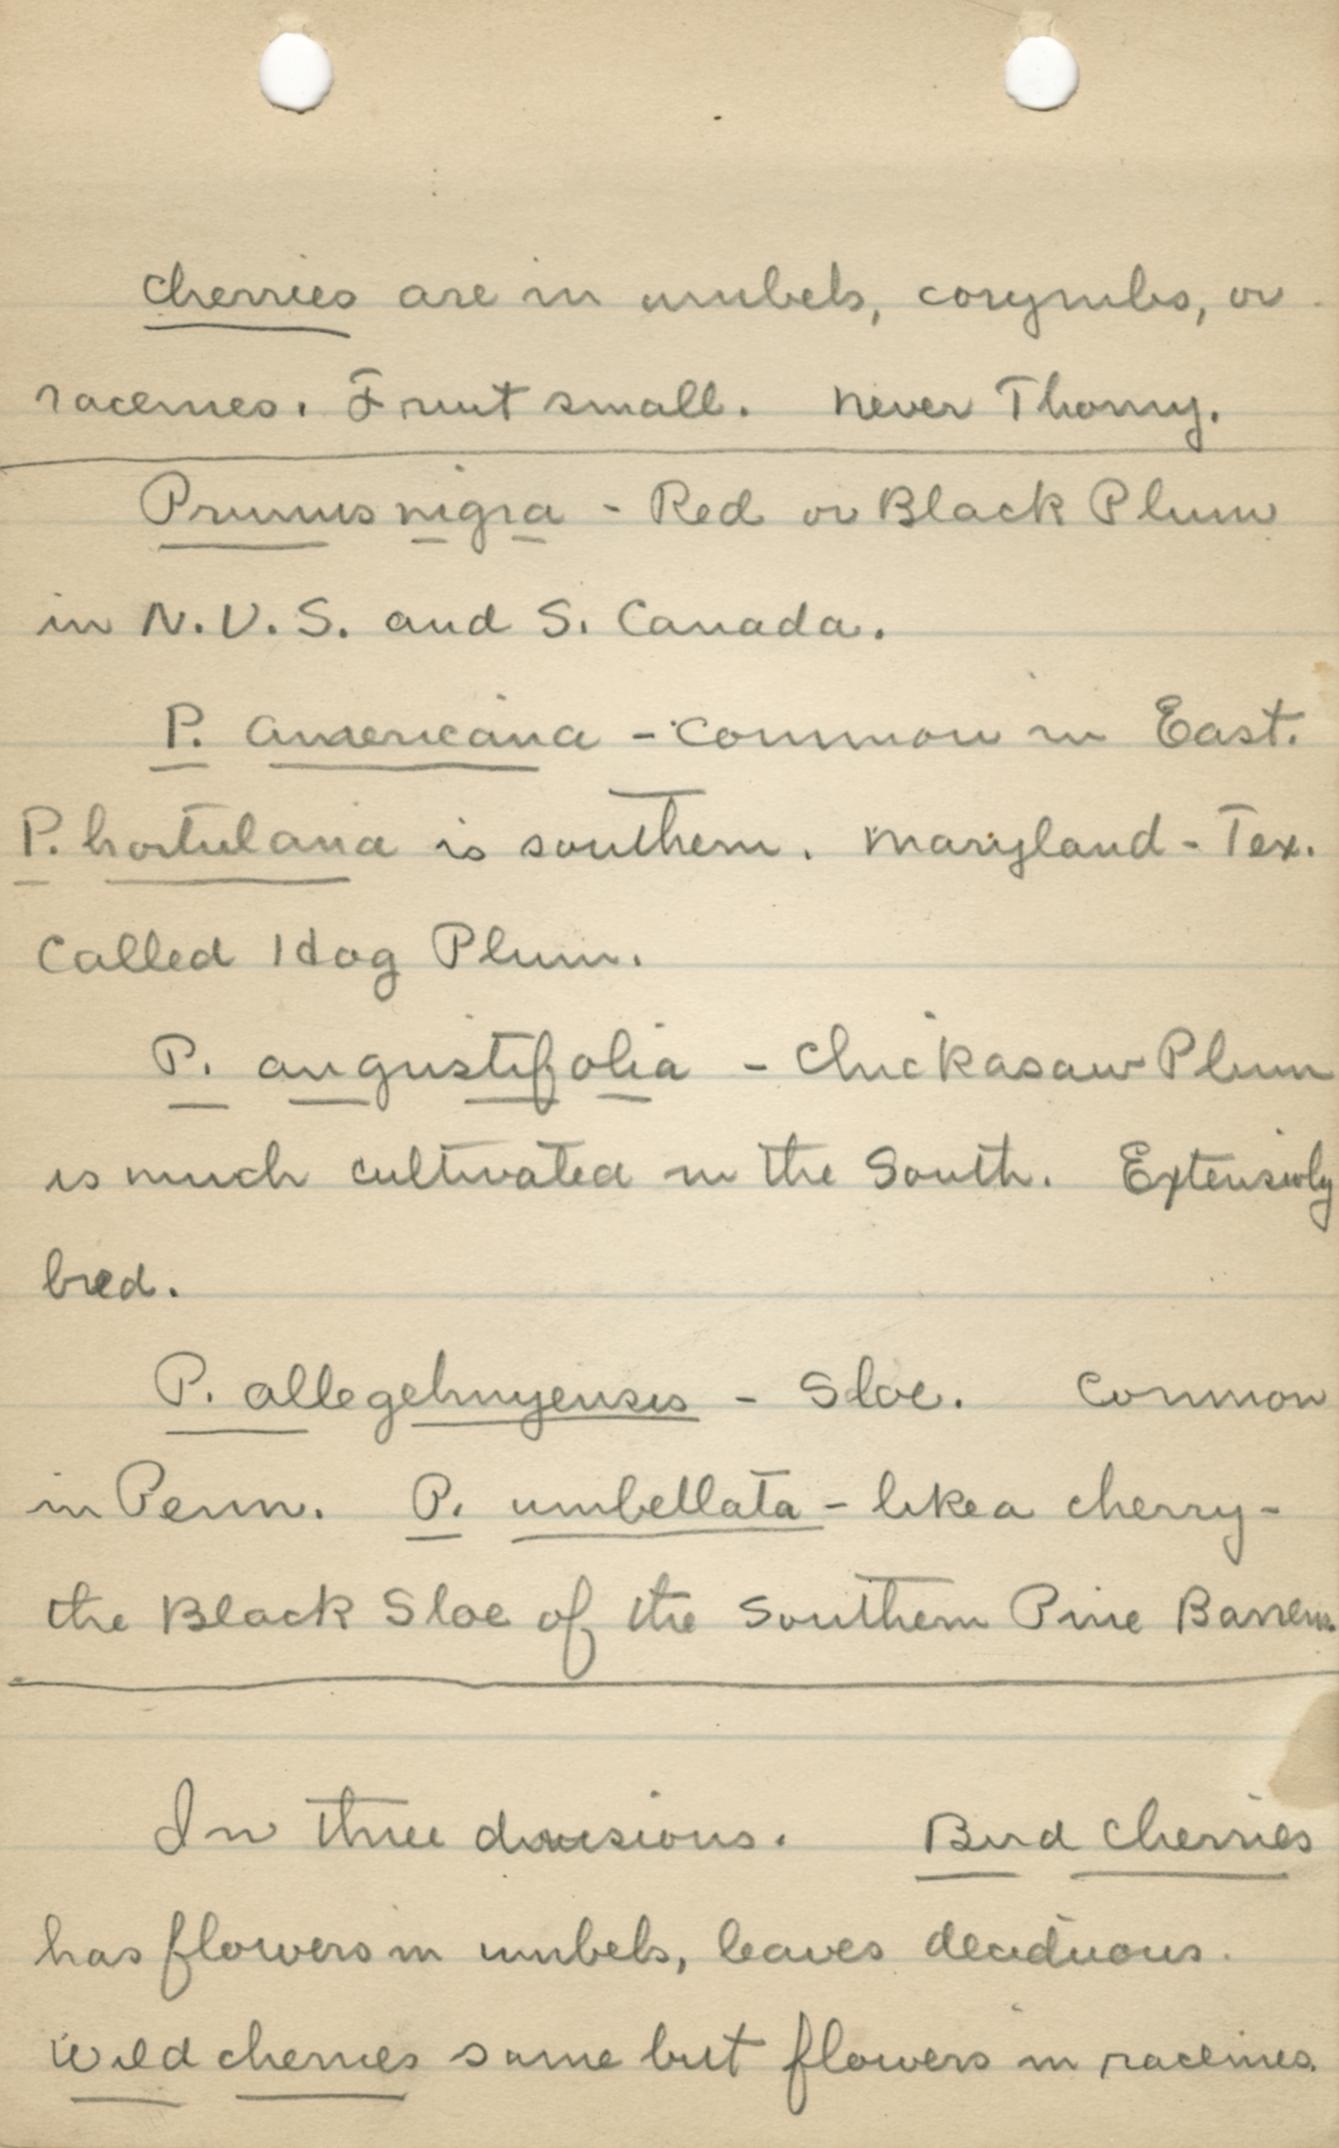 cherries are in umbels, corymbs, or
racemes. Fruit small. Never Thorny.
Prunus nigra - Red or Black Plum
in N.U.S. and S. Canada.
P. americana - common in East.
P. hortulana is southern. Maryland - Tex.
Called Hog Plum.
P. angustifolia - Chickasaw Plum
is much cultivated in the South. Extensivly
bred.
P. allegehnyensis - Sloe. Common
in Penn. P. umbellata - like a cherry -
the Black Sloe of the Southern Pine Barrens.
In three divisions. Bird Cherries
has flowers in umbels, leaves deciduous.
Wild cherries same but flowers in racemes.